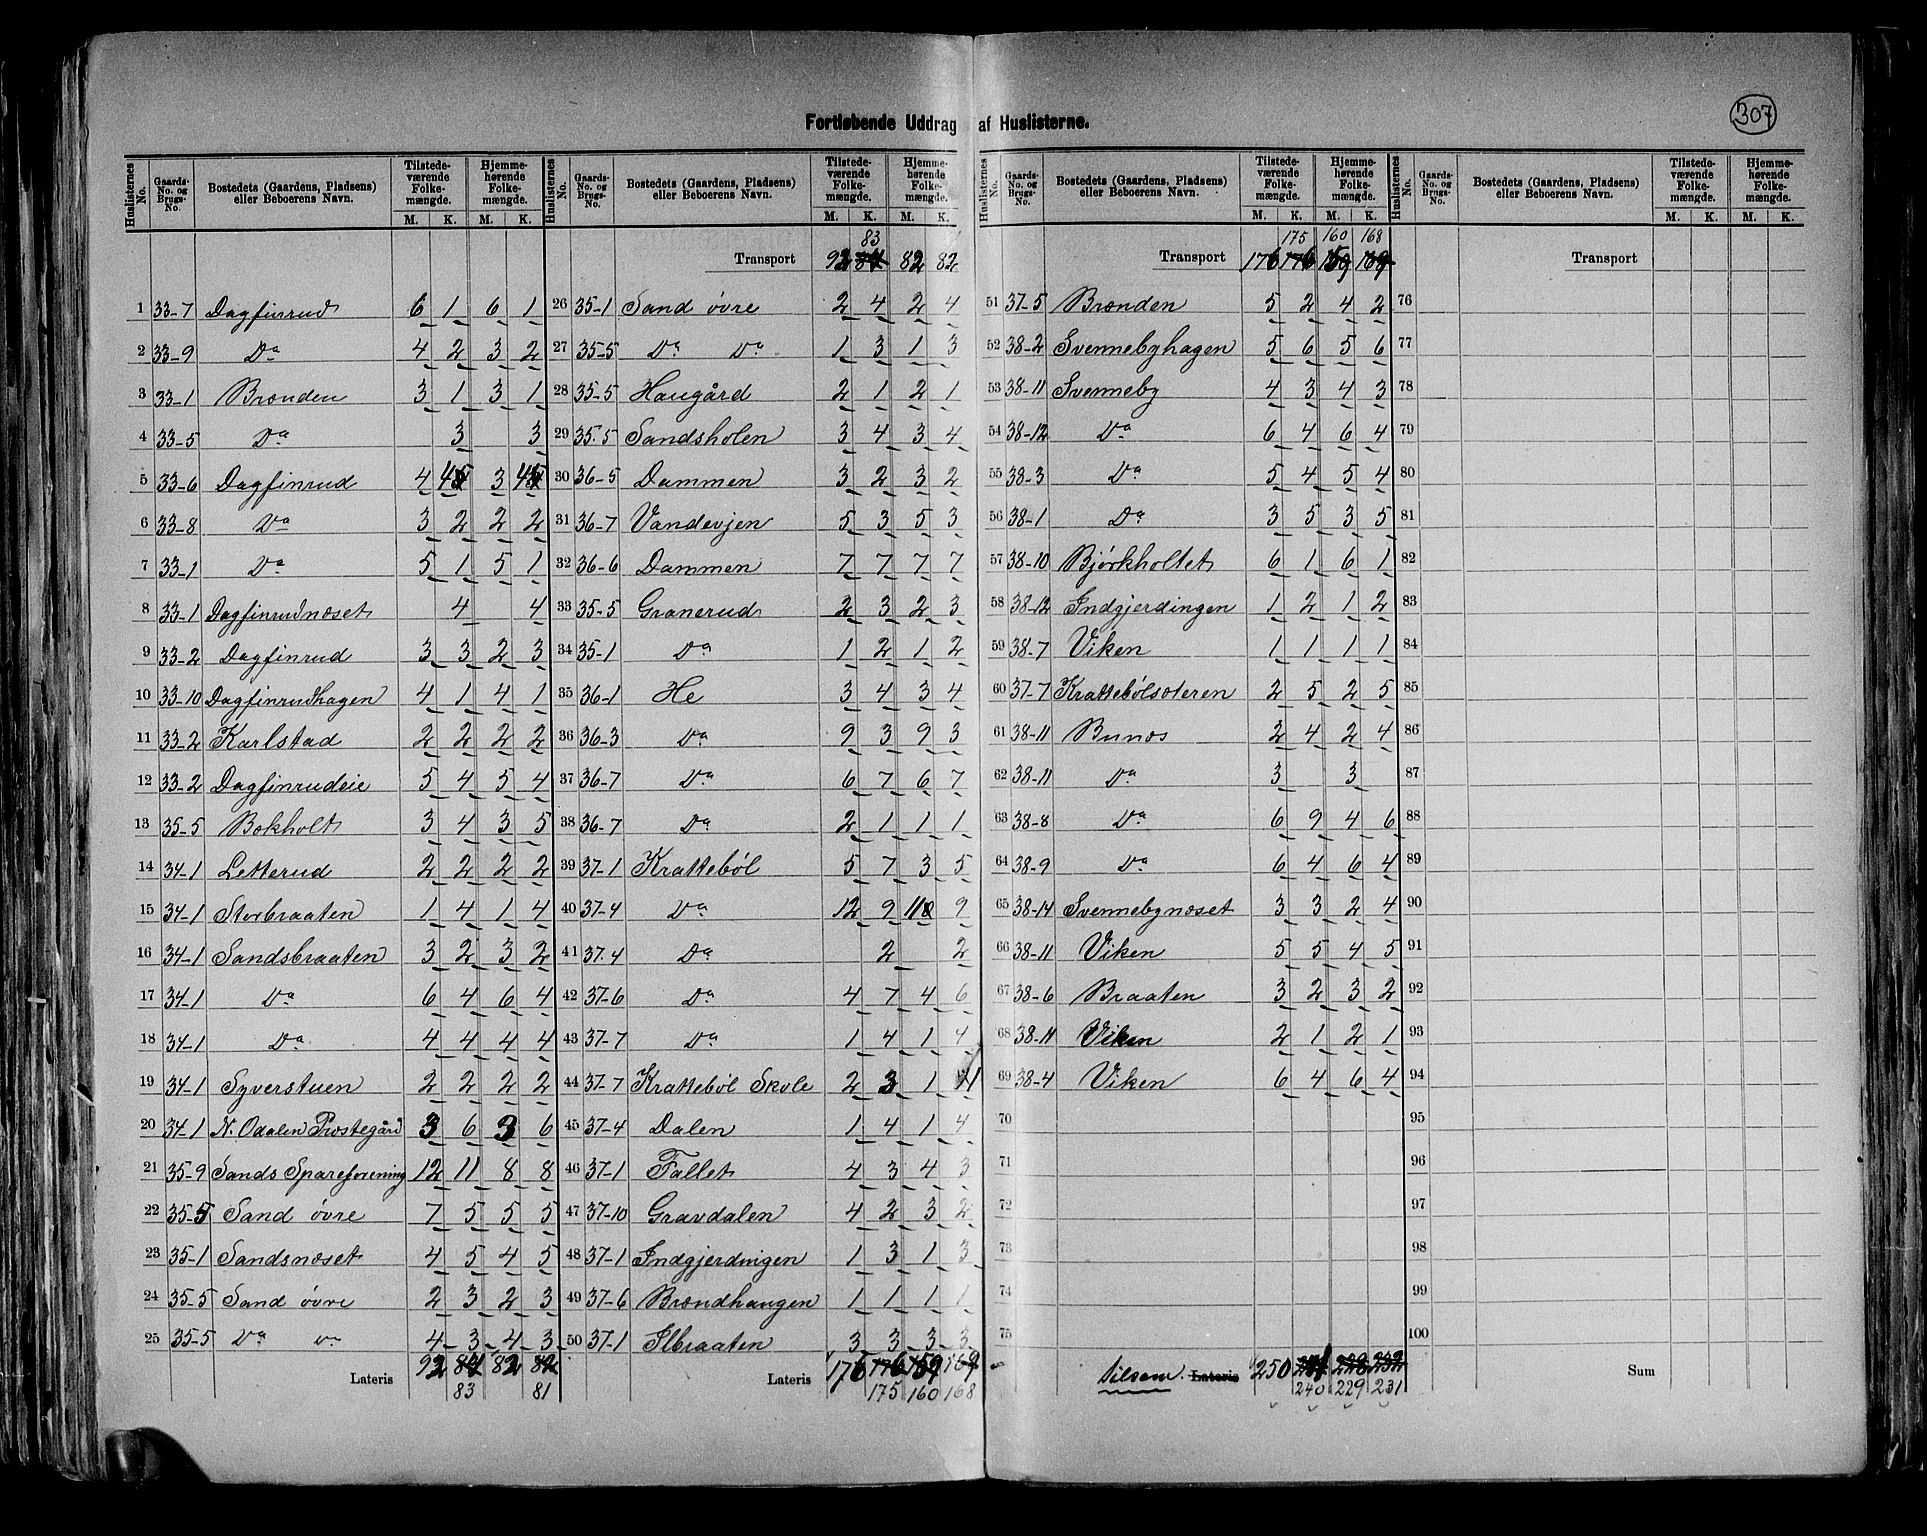 307
Fortløbende Uddrag af Huslisterne.
Huslisternes No. | Gaards-No. og Brugs-No. | Bostedets (Gaardens, Pladsens) eller Beboerens Navn. | Tilstedeværende Folkemængde. M. K. | Hjemmehørende Folkemængde. M. K.
1 33-7 Dagfinrud 6 1 6 1
2 33-9 Da 4 2 3 2
3 33-1 Brænden 3 1 3 1
4 33-5 Da 3 3
5 33-6 Dagfinrud 4 4 3 4
6 33-8 Da 3 2 2 2
7 33-1 Da 5 1 5 1
8 33-1 Dagfinrudnæset 4 4
9 33-2 Dagfinrud 3 3 2 3
10 33-10 Dagfinrudhagen 4 1 4 1
11 33-2 Karlstad 2 2 2 2
12 33-2 Dagfinrudeie 5 4 5 4
13 35-5 Bokholt 3 4 3 5
14 34-1 Letterud 2 2 2 2
15 34-1 Storbraaten 1 4 1 4
16 34-1 Sandsbraaten 3 2 3 2
17 34-1 Da 6 4 6 4
18 34-1 Da 4 4 4 4
19 34-1 Syverstuen 2 2 2 2
20 34-1 N. Odalen Præstegård 3 6 3 6
21 35-9 Sands Spareforening 12 11 8 8
22 35-5 Sand øvre 7 5 5 5
23 35-1 Sandsnæset 4 5 4 5
24 35-5 Sand øvre 2 3 2 3
25 35-5 Da Da 4 3 4 3
Lateris 92 84 82 82
83 81
Huslisternes No. | Gaards-No. og Brugs-No. | Bostedets (Gaardens, Pladsens) eller Beboerens Navn. | Tilstedeværende Folkemængde. M. K. | Hjemmehørende Folkemængde. M. K.
83
Transport 92 84 82 82
26 35-1 Sand øvre 2 4 2 4
27 35-5 Da Da 1 3 1 3
28 35-5 Haugård 2 1 2 1
29 35-5 Sandsholen 3 4 3 4
30 36-5 Dammen 3 2 3 2
31 36-7 Vandevjen 5 3 5 3
32 36-6 Dammen 7 7 7 7
33 35-5 Granerud 2 3 2 3
34 35-1 Da 1 2 1 2
35 36-1 He 3 4 3 4
36 36-3 Da 9 3 9 3
37 36-7 Da 6 7 6 7
38 36-7 Da 2 1 1 1
39 37-1 Krattebøl 5 7 3 5
40 37-4 Da 12 9 11 9
41 37-4 Da 2 2
42 37-6 Da 4 7 4 6
43 37-7 Da 1 4 1 4
44 37-7 Krattebøl Skole 2 3 1 1
45 37-4 Dalen 1 4 1 4
46 37-1 Fallet 4 3 4 3
47 37-10 Gravdalen 4 2 3 2
48 37-1 Indgjerdingen 1 3 1 3
49 37-6 Brændhaugen 1 1 1 1
50 37-1 Ilbraaten 3 3 3 3
Lateris 176 176 159 169
175 160 168
Huslisternes No. | Gaards-No. og Brugs-No. | Bostedets (Gaardens, Pladsens) eller Beboerens Navn. | Tilstedeværende Folkemængde. M. K. | Hjemmehørende Folkemængde. M. K.
175 160 168
Transport 176 176 159 169
51 37-5 Brænden 5 2 4 2
52 38-2 Svennebyhagen 5 6 5 6
53 38-11 Svenneby 4 3 4 3
54 38-12 Da 6 4 6 4
55 38-3 Da 5 4 5 4
56 38-1 Da 3 5 3 5
57 38-10 Bjørkholtet 6 1 6 1
58 38-12 Indgjerdingen 1 2 1 2
59 38-7 Viken 1 1 1 1
60 37-7 Krattebølsæteren 2 5 2 5
61 38-11 Bunæs 2 4 2 4
62 38-11 Da 3 3
63 38-8 Da 6 9 4 6
64 38-9 Da 6 4 6 4
65 38-14 Svennebynæset 3 3 2 4
66 38-11 Viken 5 5 4 5
67 38-6 Braaten 3 2 3 2
68 38-11 Viken 2 1 2 1
69 38-4 Viken 6 4 6 4
70
71
72
73
74
75
Tilsam. Lateris 250 241 228 232
240 229 231
Huslisternes No. | Gaards-No. og Brugs-No. | Bostedets (Gaardens, Pladsens) eller Beboerens Navn. | Tilstedeværende Folkemængde. M. K. | Hjemmehørende Folkemængde. M. K.
Transport
76
77
78
79
80
81
82
83
84
85
86
87
88
89
90
91
92
93
94
95
96
97
98
99
100
Sum